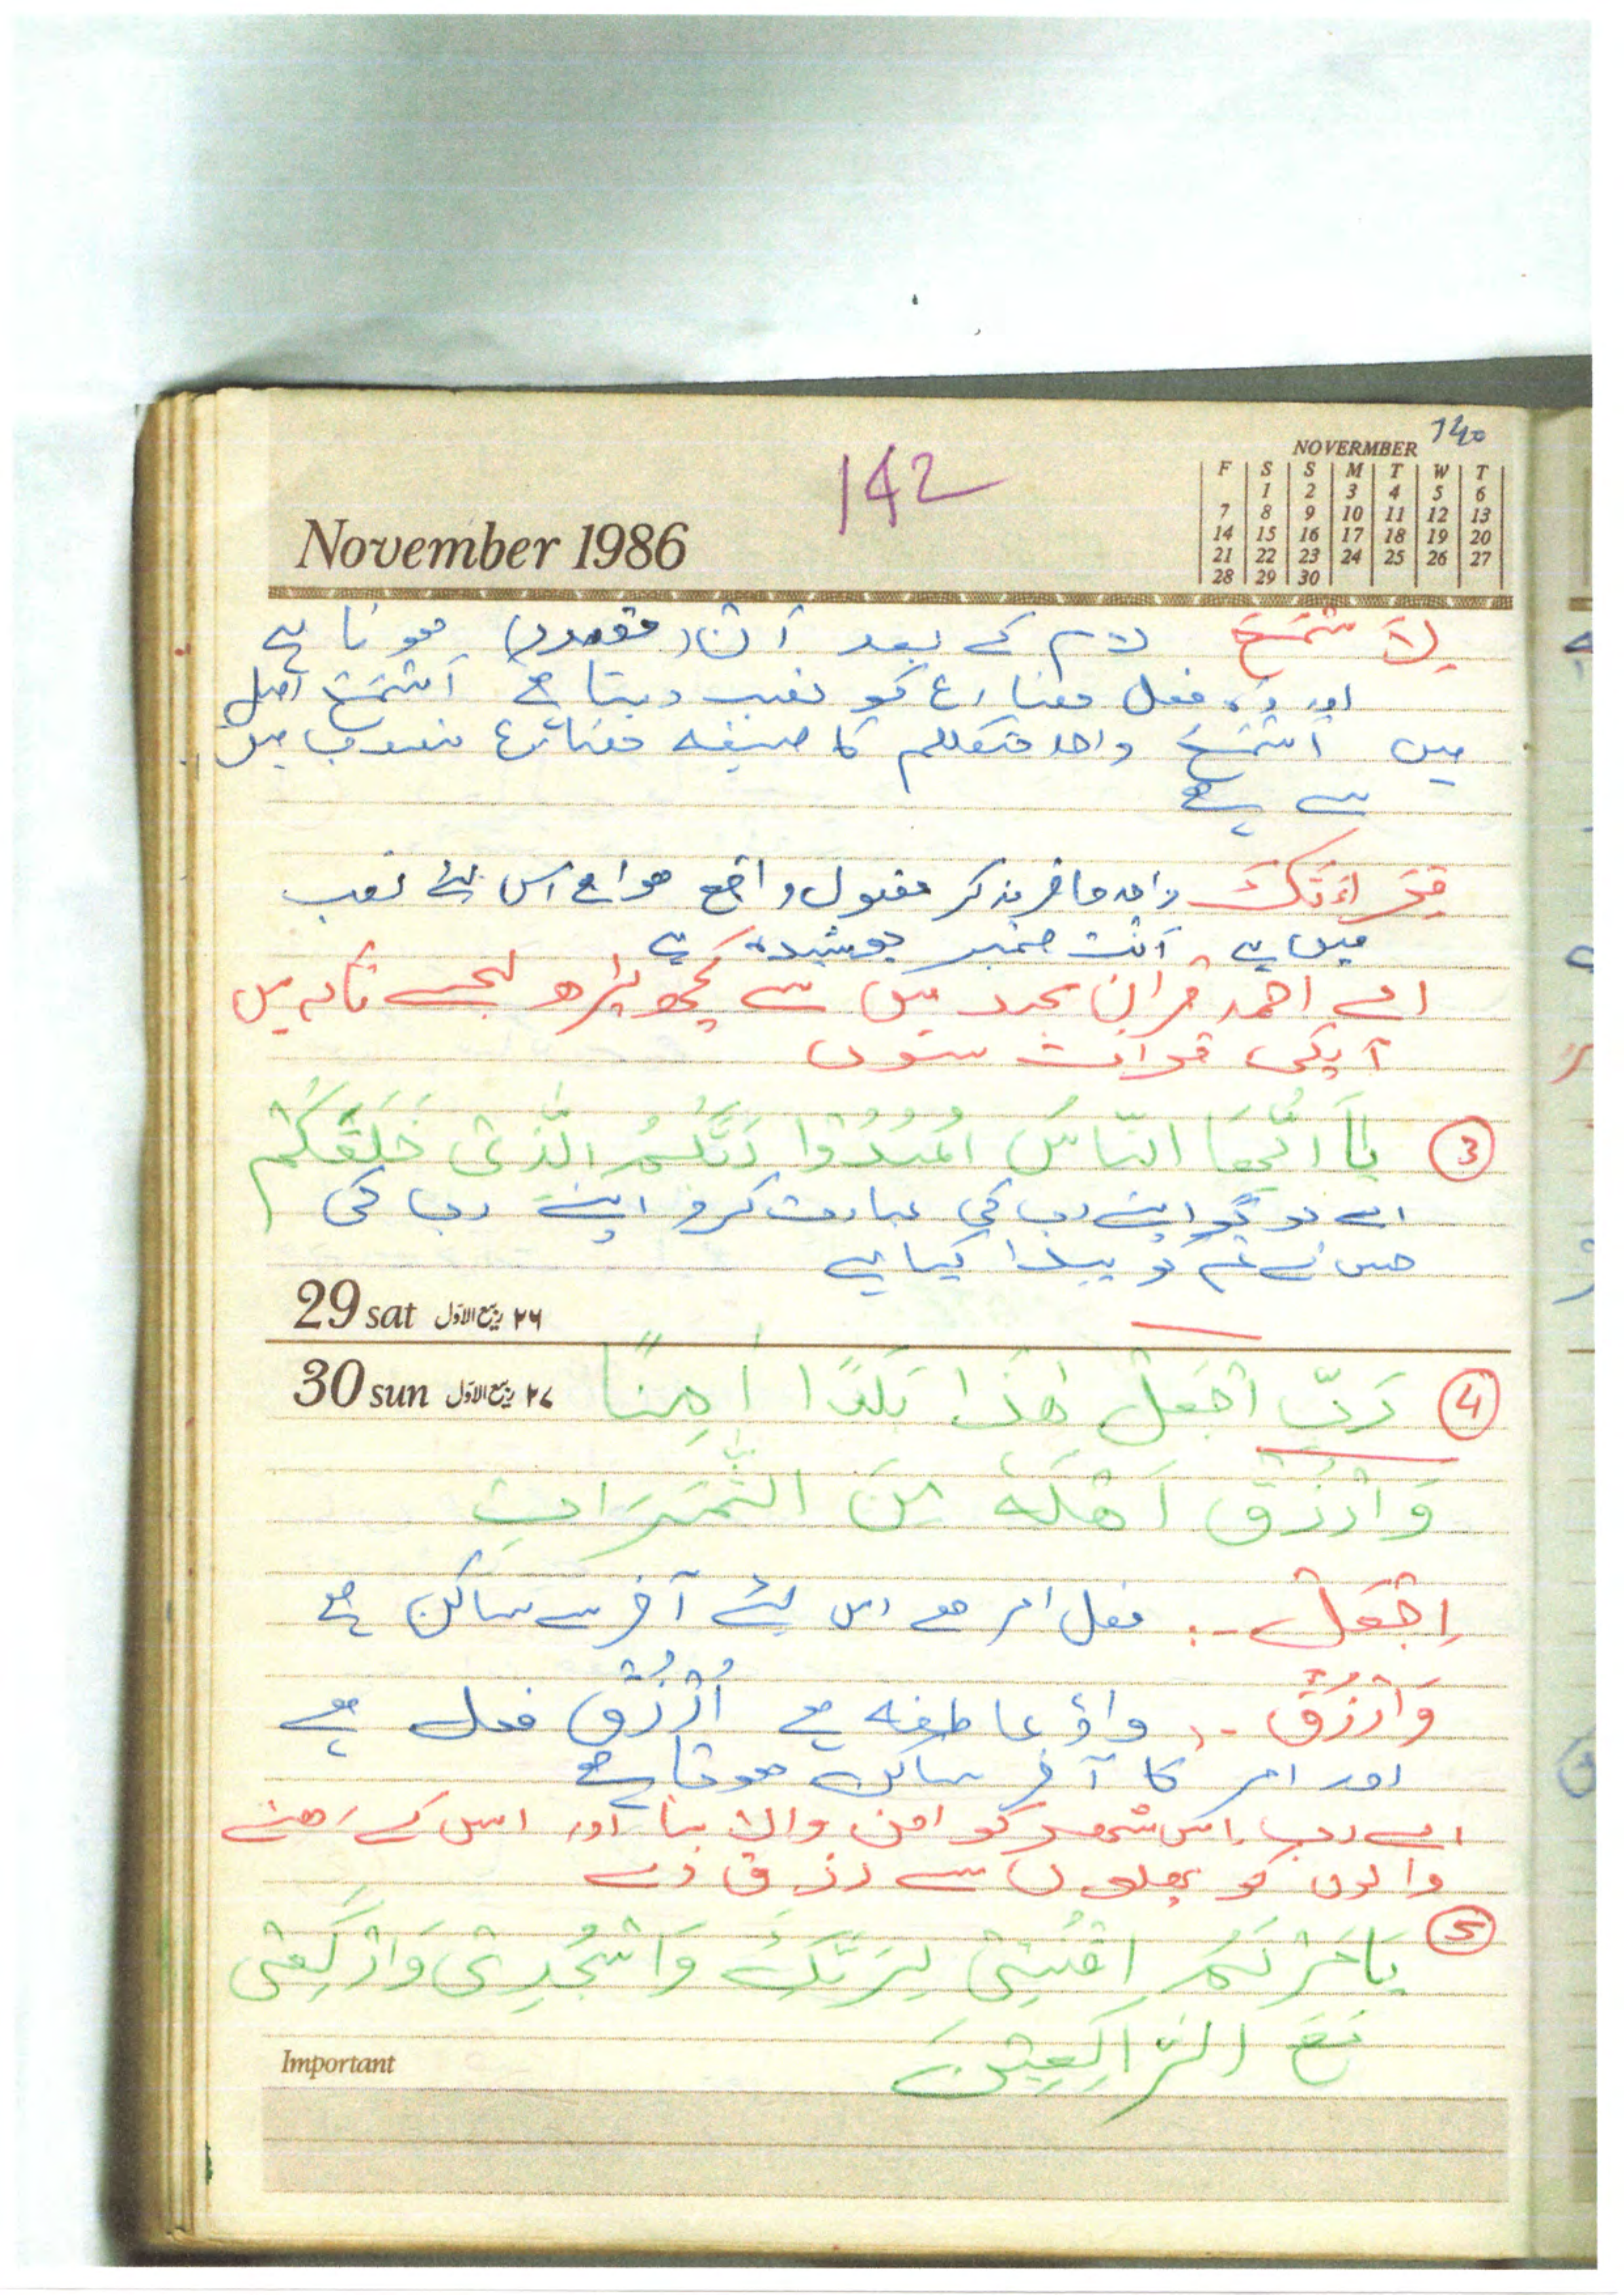 140
NOVERMBER
F S S M T W T
1 2 3 4 5 6
7 8 9 10 11 12 13
14 15 16 17 18 19 20
21 22 23 24 25 26 27
28 29 30
142
November 1986
لام کے بعد اَن (مقدرہ) ہوتا ہے
اور وہ فعل مضارع کو نصب دیتا ہے اَسْمَعَ اصل
میں اَسْمَعُ واحد متکلم کا صیغہ مضارع معروف میں
سے ہے
قِرَاءَتَکَ واحد حاضر مذکر مفعول واقع ہوا ہے اس لئے نصب
میں ہے اَنْتَ ضمیر پوشیدہ ہے
اے احمد قرآن مجید میں سے کچھ پڑھو لیجے تاکہ میں
آپکی قرأت سنوں
③ یٰاَ اَیُّھَا النَّاسُ اعْبُدُوْا رَبَّکُمُ الَّذِیْ خَلَقَکُمْ
اے لوگو اپنے رب کی عبادت کرو اپنے رب کی
جس نے تم کو پیدا کیا ہے
29 sat ۲۶ ربیع الاوّل
30 sun ۲۷ ربیع الاوّل
④ رَبِّ اجْعَلْ ھٰذَا بَلَدًا اٰمِنًا
وَارْزُقْ اَھْلَهٗ مِنَ الثَّمَرَاتِ
اِجْعَلْ :- فعل امر ہے اس لئے آخر سے ساکن ہے
وَارْزُقْ :- واؤ عاطفہ ہے اُرْزُقْ فعل ہے
اور امر کا آخر ساکن ہوتا ہے
اے رب اس شہر کو امن والا بنا اور اس کے رھنے
والوں کو پھلوں سے رزق دے
⑤ یَامَرْیَمُ اقْنُتِیْ لِرَبِّکِ وَاسْجُدِیْ وَارْکَعِیْ
مَعَ الرَّاکِعِیْنَ
Important